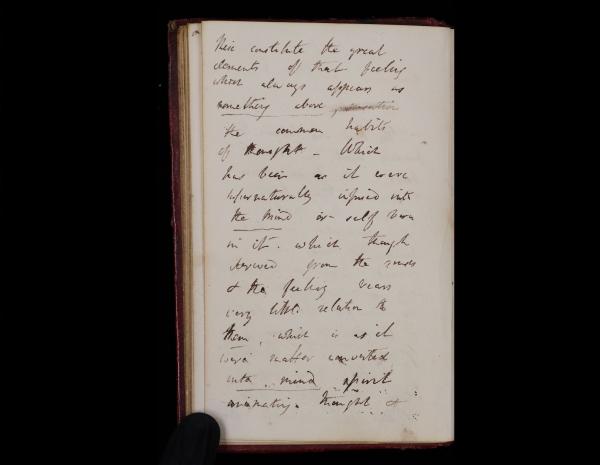 constitute the great
elements of that feeling
which always appears as
something above
the common habits
of thought – Which
has been as it were
supernaturally infused into
the mind or self born
in it. which though
derived from the senses
& the feeling bears
very little relation to
them, which is as it
were matter converted
into mind spirit
animating thought &